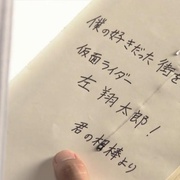 僕の好きだった街を
仮面ライダー
左 翔太郎！
君の相棒より